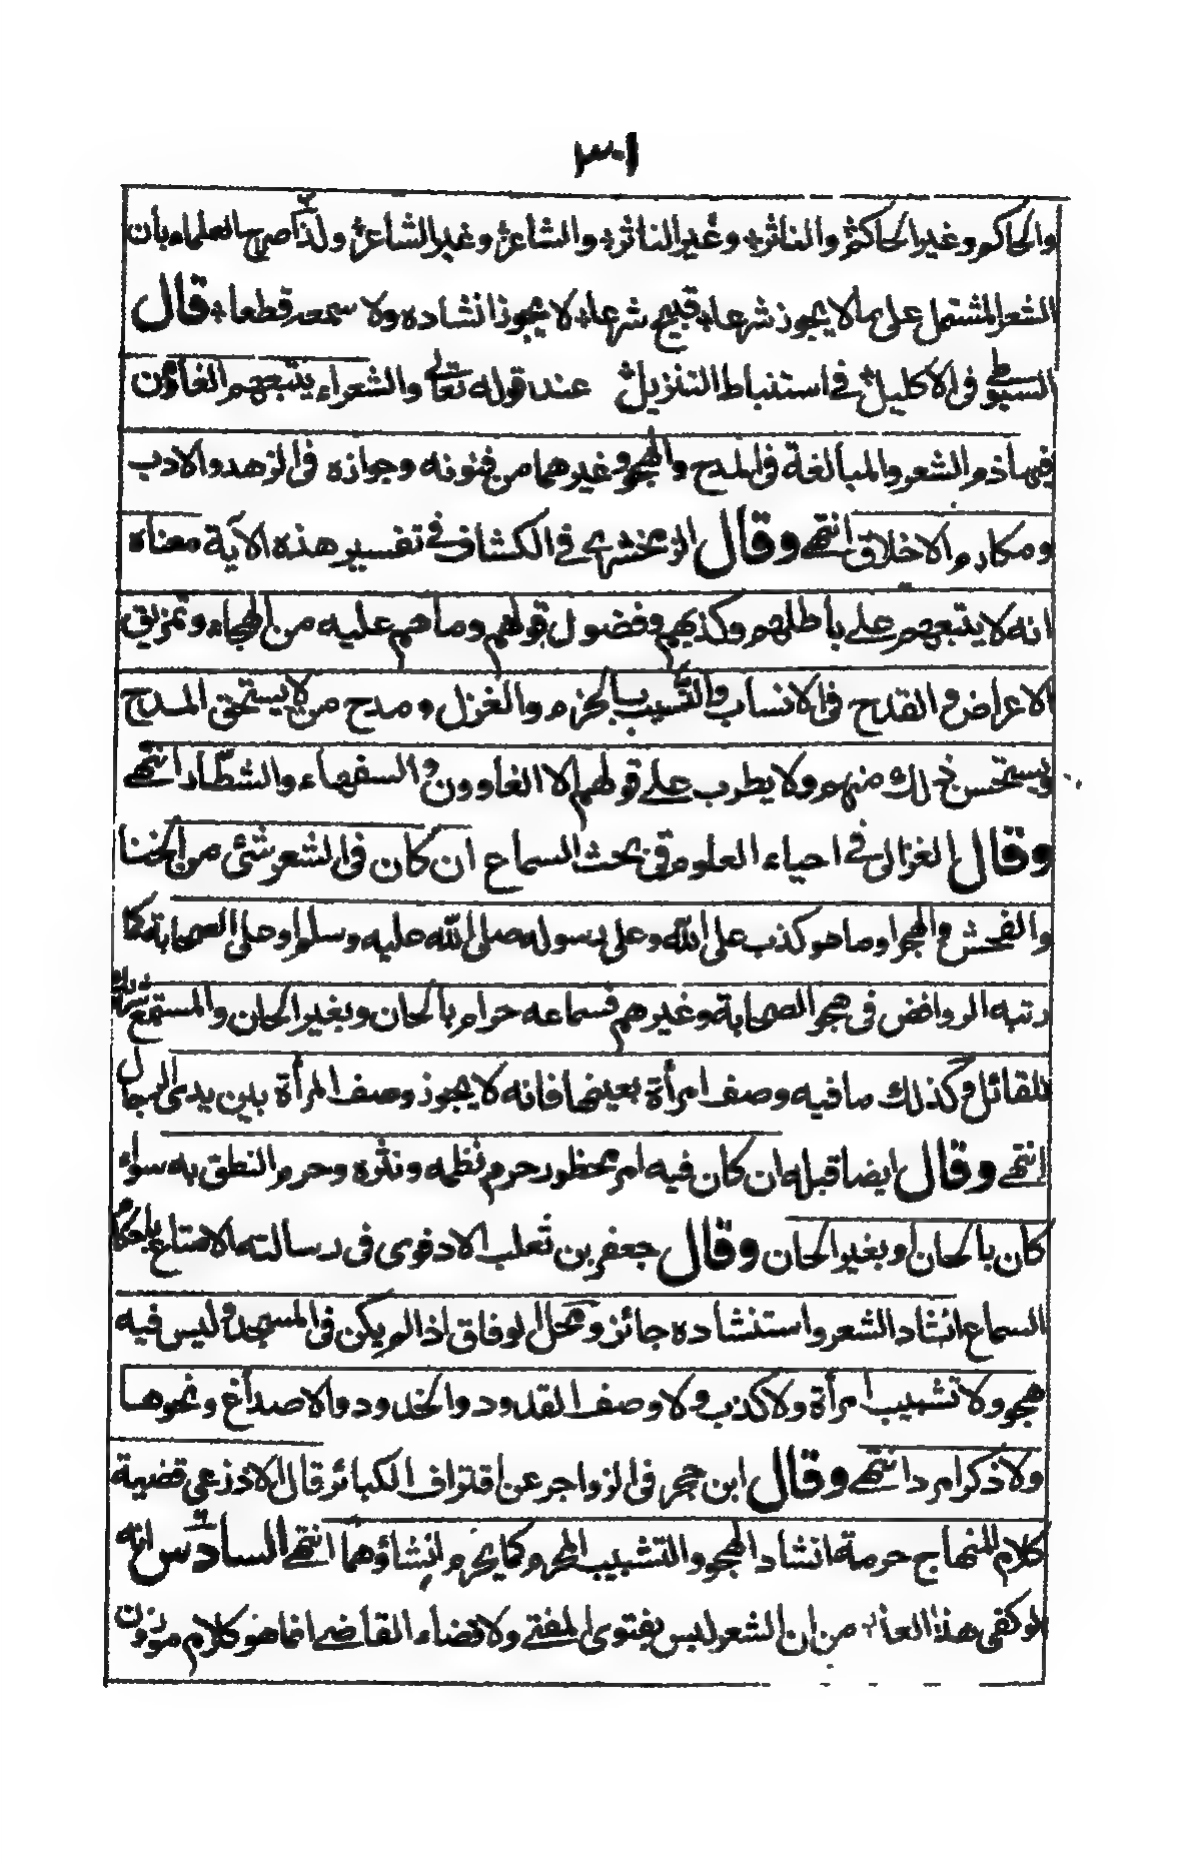 ٣٠١
والحاكم وغير الحاكم؛ والناثر؛ وغير الناثر؛ والشاعر؛ وغير الشاعر؛ ولذا صرح العلماء بان
الشعر المشتمل على ما لا يجوز شرعا؛ قبيح شرعا؛ لا يجوز انشاده ولا سمعه قطعا؛ قال
السيوطي في الاكليل؛ في استنباط التنزيل؛ عند قوله تعالى والشعراء يتبعهم الغاؤن
فيها ذم الشعر والمبالغة في المدح والهجو وغيرهما من فنونه وجوازه في الزهد والادب
ومكارم الاخلاق انتهى وقال الزمخشري في الكشاف في تفسير هذه الآية معناه
انه لا يتبعهم على باطلهم وكذبهم وفضول قولهم وما هم عليه من الهجاء وتمزيق
الاعراض والقدح في الانساب والنسيب بالحزم والغزل ومدح من لا يستحق المدح
ويستحسن ذلك منهم ولا يطرب على قولهم الا الغاوون والسفهاء والشطار انتهى
وقال الغزالي في احياء العلوم في بحث السماع ان كان في الشعر شئ من الخنا
والفحش والهجر او ما هو كذب على الله وعلى رسوله صلى الله عليه وسلم او على الصحابة كما
رتبه الروافض في هجو الصحابة وغيرهم فسماعه حرام بالحان وبغير الحان والمستمع شريك
للقائل وكذلك ما فيه وصف امرأة بعينها فانه لا يجوز وصف المرأة بين يدي الرجال
انتهى وقال ايضا قبله ان كان فيه امر محظور حرم نظمه ونثره وحرم النطق به سواء
كان بالحان او بغير الحان وقال جعفر بن ثعلب الادفوي في رسالته الامتاع باحكام
السماع انشاد الشعر واستنشاده جائز ومحل الوفاق اذا لم يكن في المسجد وليس فيه
هجو ولا تشبيب امرأة ولا كذب ولا وصف القدود والخدود والاصداغ ونحوها
ولا ذكر امرد انتهى وقال ابن حجر في الزواجر عن اقتراف الكبائر قال الاذرعي قضية
كلام المنهاج حرمة انشاد الهجو والتشبيب المحرم وكما يحرم انشاؤهما انتهى السادس انه
لو كفى هذا العذر من ان الشعر ليس بفتوى المفتي ولا قضاء القاضي انما هو كلام موزون